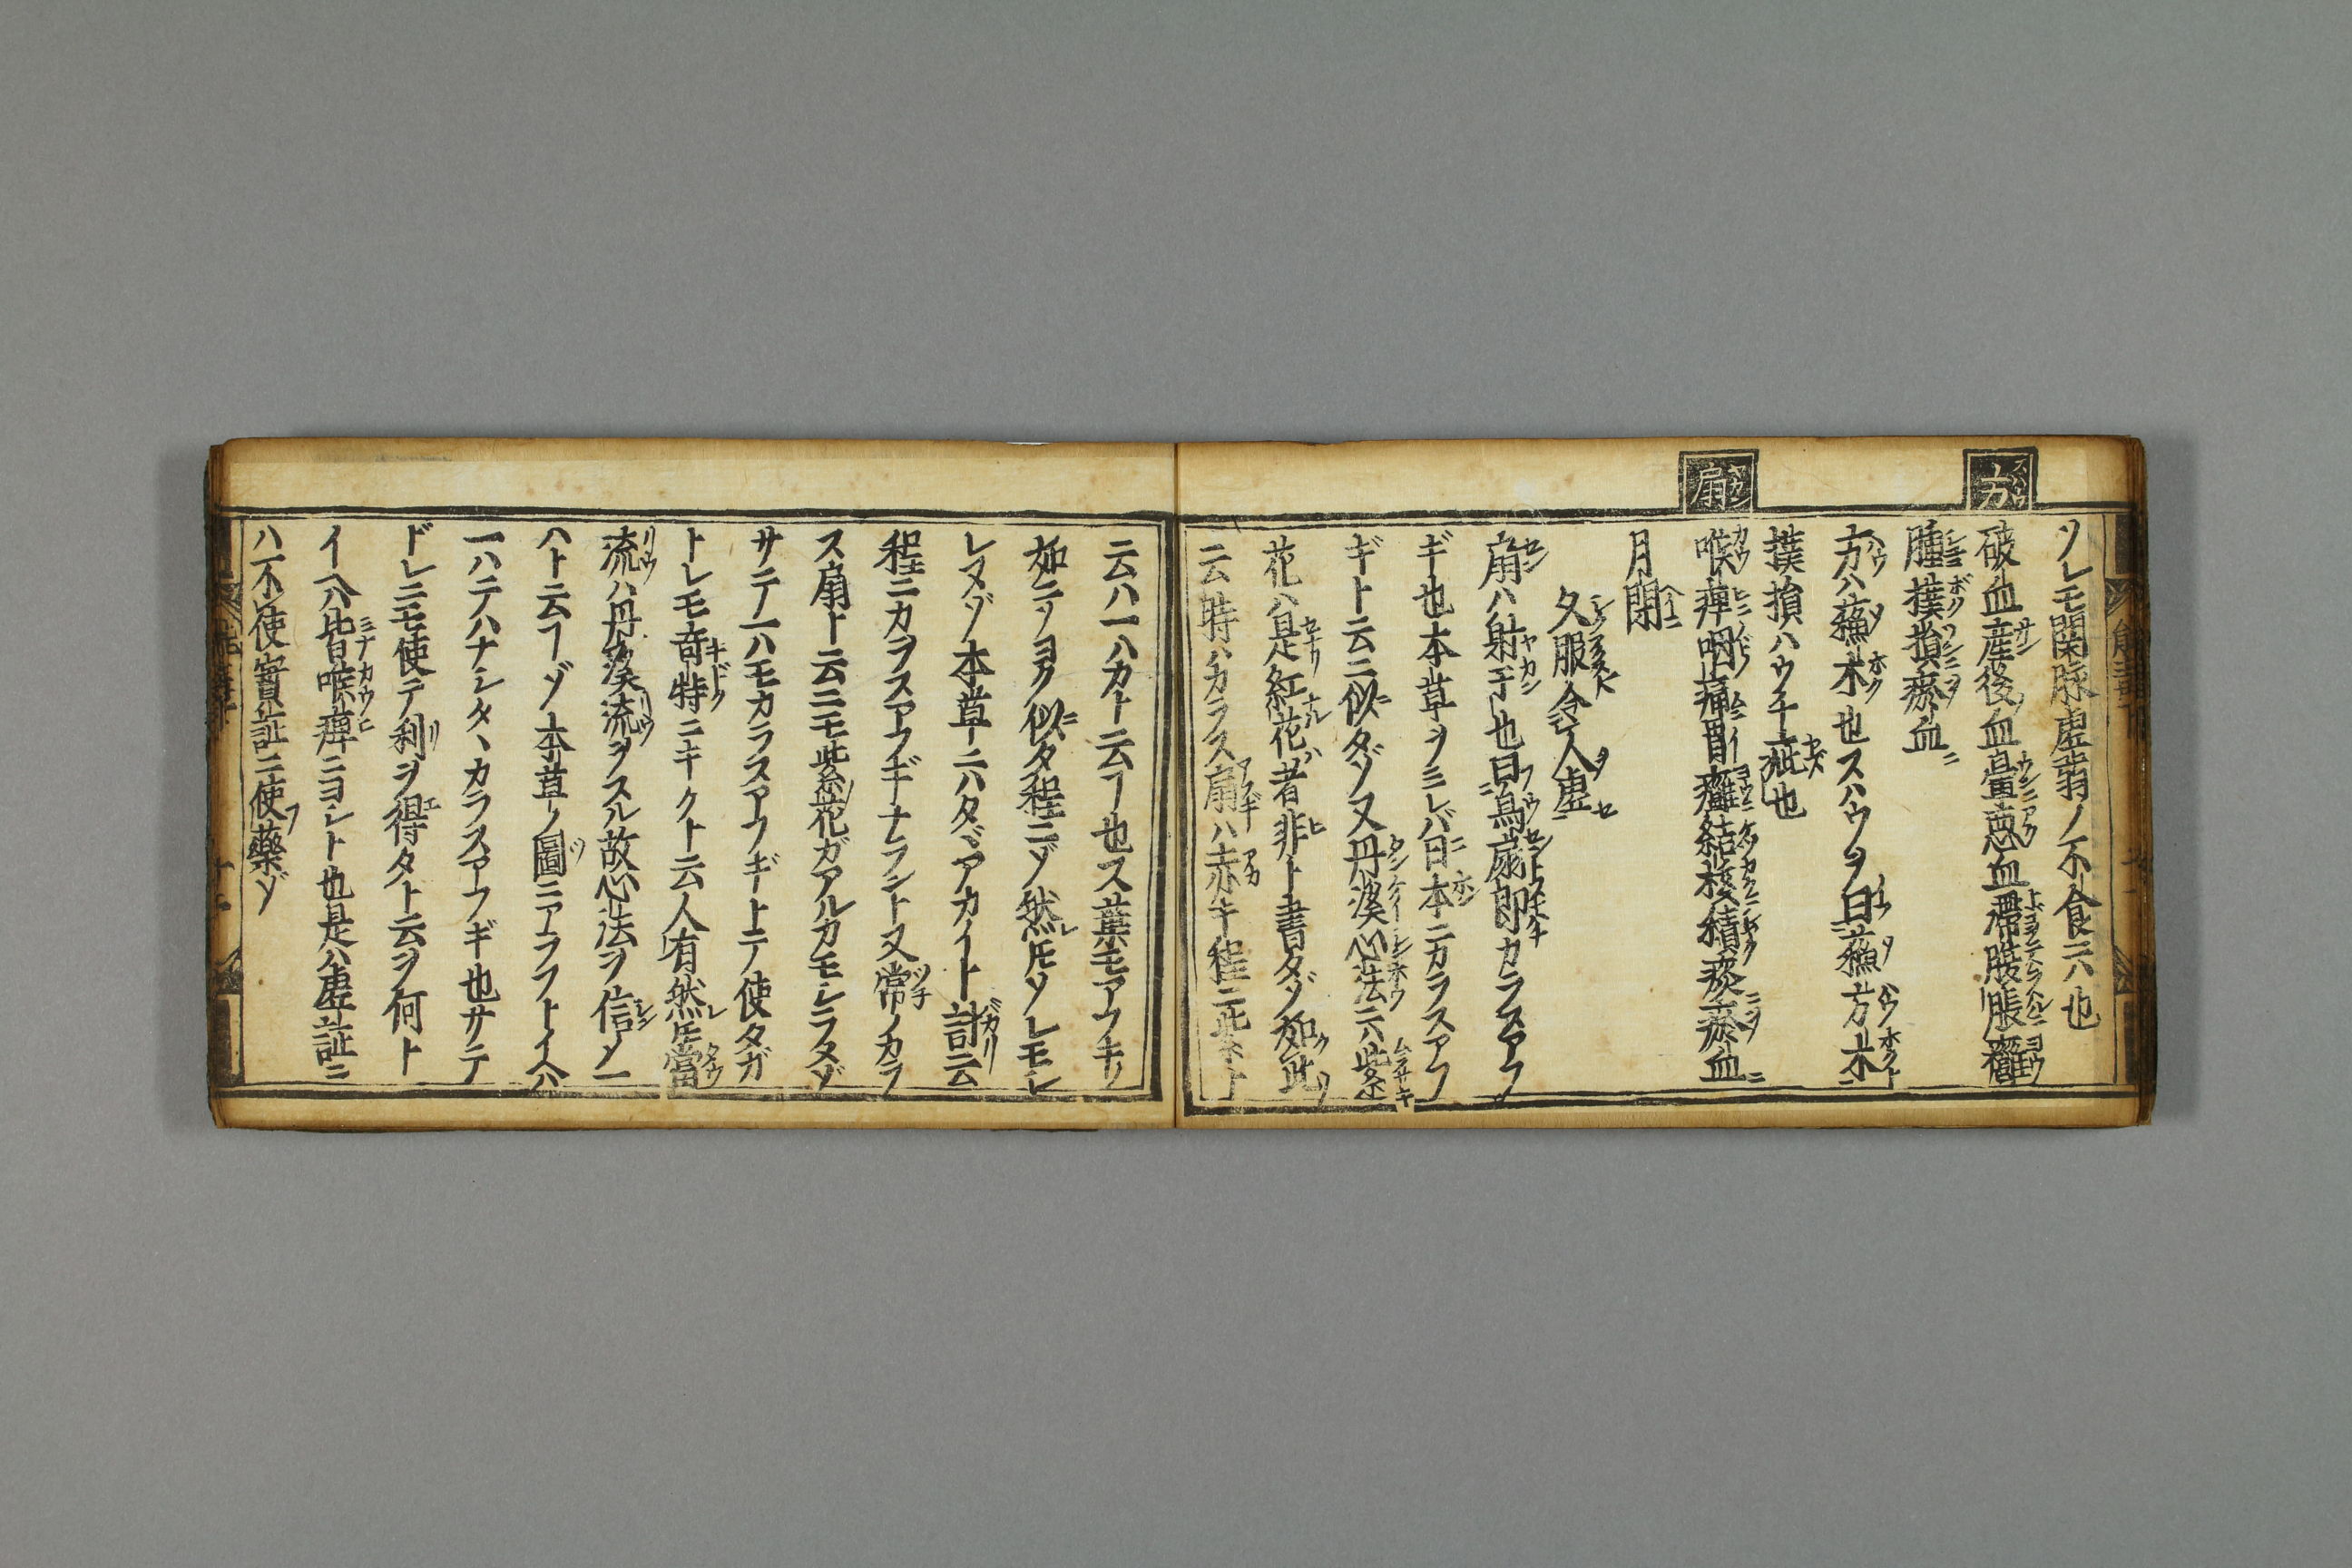 方
スハウ
ソレモ関脉虚弱ノ不食云ハ也
破血産後血暈悪血滞腹脹癰
腫撲損瘀血
方ハ蘓木也スハウヲ曰蘓方木
撲損ハウチ疵也
扇
ヤカン
喉痺咽痛胃癰結核積痰瘀血
月閉
久服令人虚
扇ハ射干也曰烏扇即カラスアフ
ギ也本草ヲミレバ日本ニカラスアフ
ギト云ニ似タゾ又丹溪心法云ハ紫
花ハ是紅花者非ト書タゾ如此
云時ハカラス扇ハ赤キ程ニ死
云ハ一ハカト云フ也ス葉モアフキノ
如ニソヨク似タ程ニゾ然モソレモシ
レヌゾ本草ニハタヾアカイト計云
程ニカラスアフギナラント又常ノカラ
ス扇ト云ニモ紫花ガアルカモシラヌゾ
サテ一ハモカラスアフギトテ使タガ
トレモ奇特ニキクト云人有然モ當
流ハ丹溪流ヲスル故心法ヲ信メ一
ハト云フゾ本草ノ圖ニアラフトイヘハ
一ハテハナシタヽカラスアフギ也サテ
ドレニモ使テ利ヲ得タト云ヲ何ト
イヘハ皆喉痺ニヨシト也是ハ虚証ニ
ハ不使實証ニ使藥ゾ